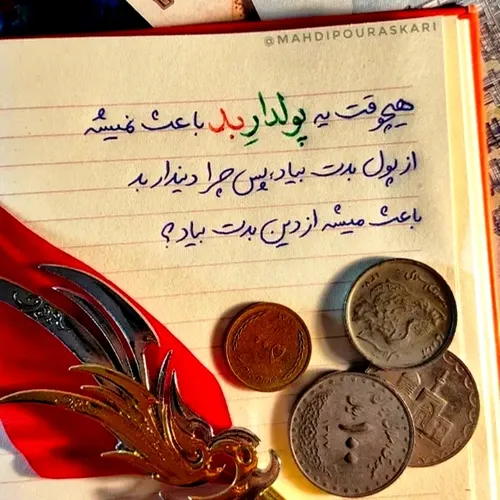 @MAHDIPOURASKARI
هیچوقت یه پولدارِ بد باعث نمیشه
از پول بدت بیاد، پس چرا دیندار بد
باعث میشه از دین بدت بیاد؟
۱۰۰